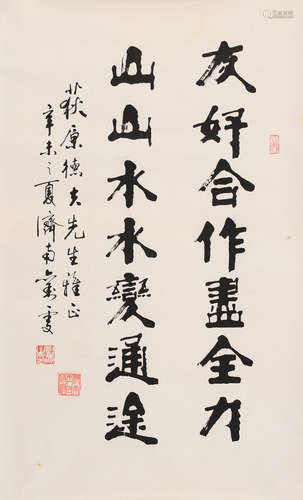 友好合作盡全力
山山水水變通途
荻原德夫先生雅正
辛未之夏濟南